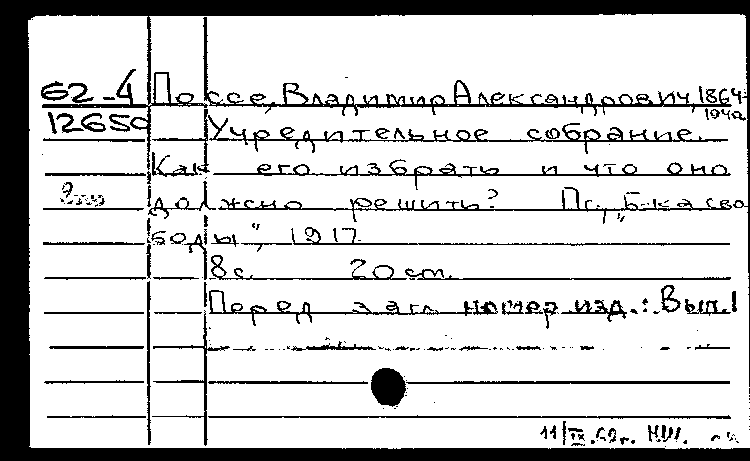 62-4 Поссе, Владимир Александрович, 1864-
1940
12650 Учредительное собрание.
Как его избрать и что оно
должно решить? Пг., „Б-ка сво
боды", 1917
8 с. 20 см.
Перед загл. номер изд.: Вып. 1
11/IX.69г.